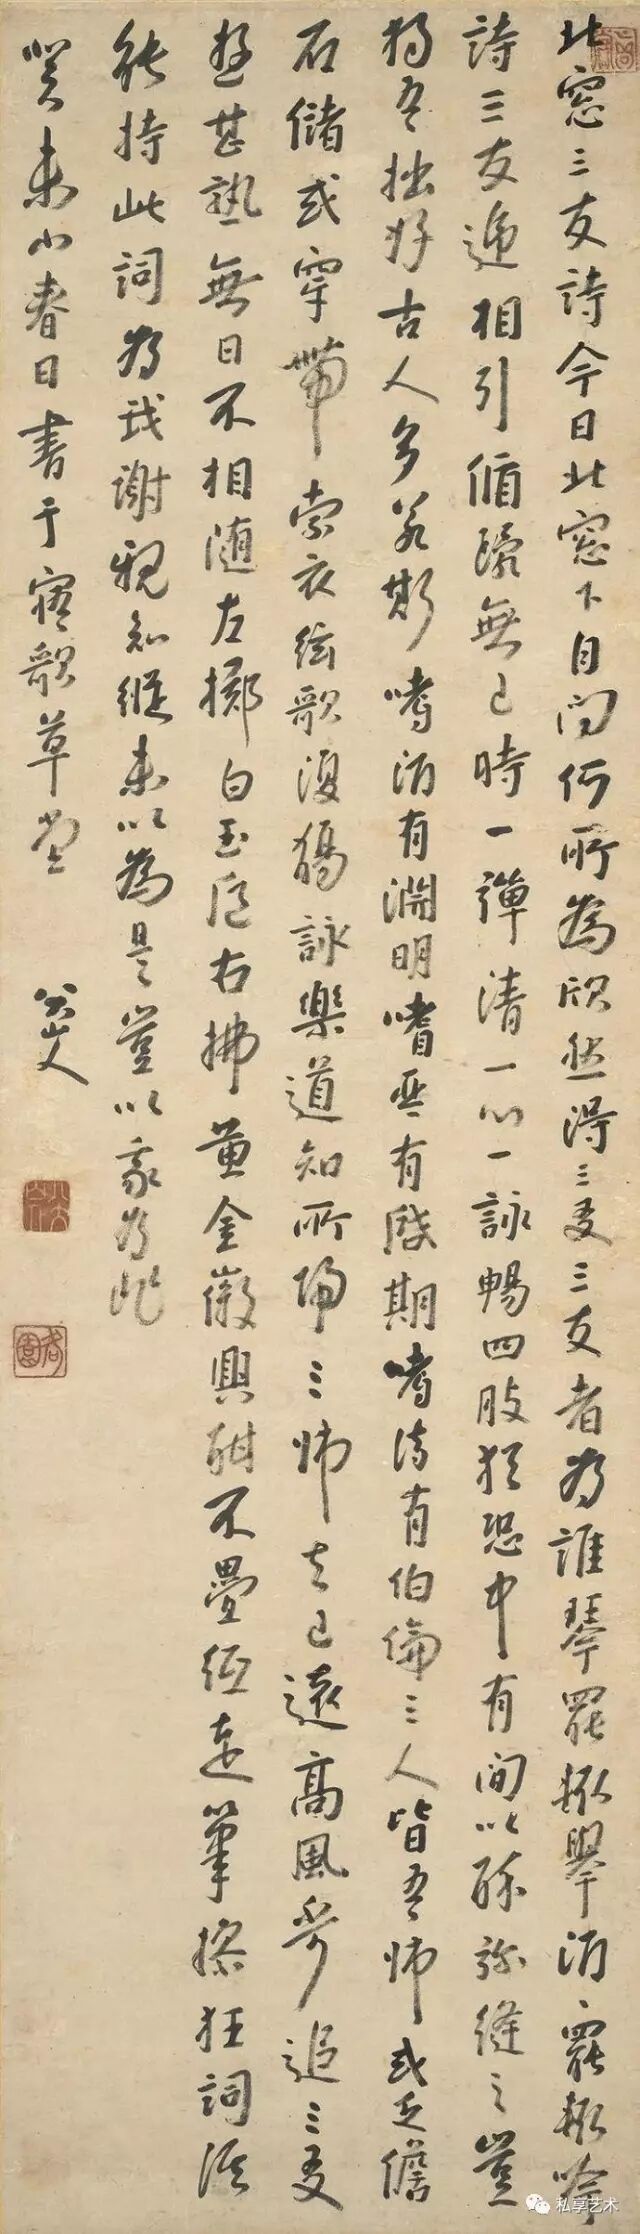 北窓三友詩今日北窓下自问何所為欣然得三友三友者为誰琴罷輒舉酒、罷輒吟
詩三友遞相引循環無已時一彈清一心一詠暢四肢猶恐中有间以酔弥縫之豈
獨吾拙好古人多若斯嗜酒有淵明嗜琴有啟期嗜诗有伯倫三人皆吾师或乏儋
石儲或穿帶索衣絃歌復觴詠樂道知所歸三师去已遠高風不可追三友
遊甚熟無日不相随左擲白玉卮右拂黄金徽興酣不疊纸走筆操狂詞誰
能持此詞为我謝親知縱未以為是豈以我为非
癸未小春日書于寤歌草堂
八大山人
私享艺术